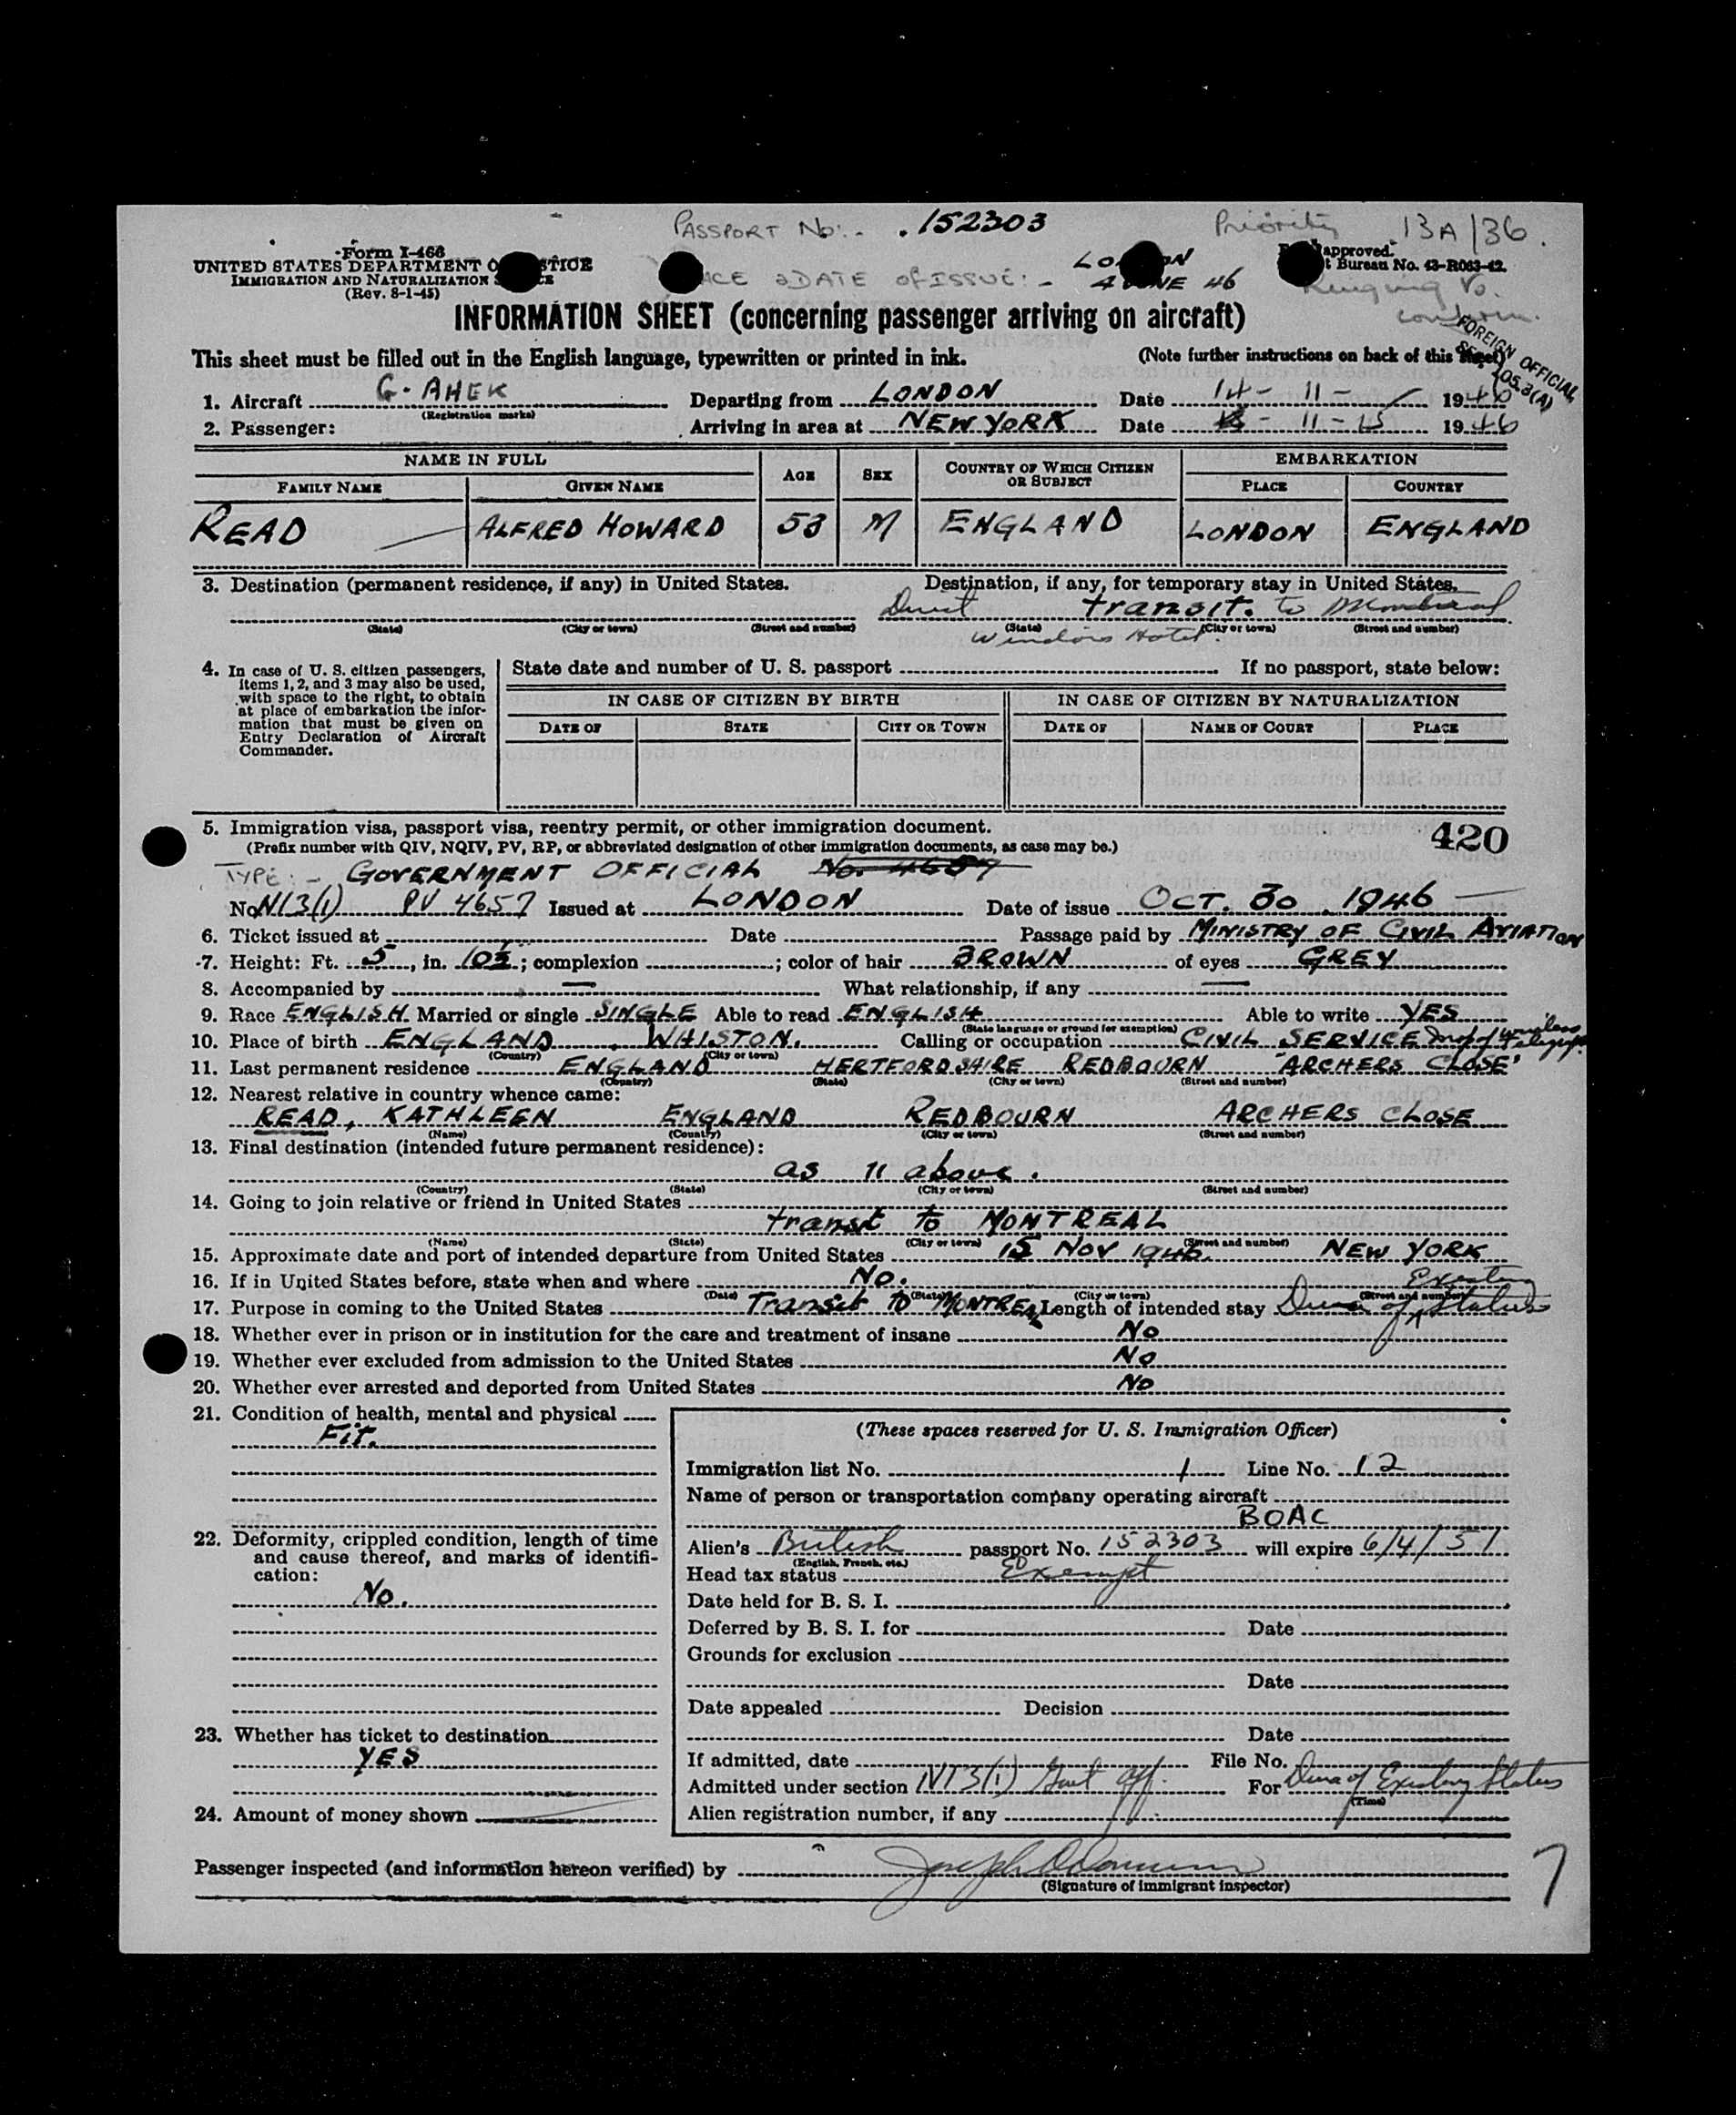 PASSPORT No:- .152303 Priority 13A/36.
Form I-466
UNITED STATES DEPARTMENT OF JUSTICE
IMMIGRATION AND NATURALIZATION
(Rev. 8-1-45)
DATE OF ISSUE:- LONDON
4 JUNE 46
approved.
Bureau No. 43-R063-42.
INFORMATION SHEET (concerning passenger arriving on aircraft)
FOREIGN OFFICIAL
This sheet must be filled out in the English language, typewritten or printed in ink. (Note further instructions on back of this sheet)
1. Aircraft G-AHEK Departing from LONDON Date 14- 11- 1946
(Registration marks)
2. Passenger: Arriving in area at NEW YORK Date 11-15 1946
NAME IN FULL AGE SEX COUNTRY OF WHICH CITIZEN OR SUBJECT EMBARKATION
FAMILY NAME GIVEN NAME PLACE COUNTRY
READ ALFRED HOWARD 53 M ENGLAND LONDON ENGLAND
3. Destination (permanent residence, if any) in United States. Destination, if any, for temporary stay in United States.
Direct transit. to Montreal
(State) (City or town) (Street and number) (State) (City or town) (Street and number)
Windsor Hotel.
4. In case of U. S. citizen passengers, items 1, 2, and 3 may also be used, with space to the right, to obtain at place of embarkation the information that must be given on Entry Declaration of Aircraft Commander.
State date and number of U. S. passport If no passport, state below:
IN CASE OF CITIZEN BY BIRTH IN CASE OF CITIZEN BY NATURALIZATION
DATE OF STATE CITY OR TOWN DATE OF NAME OF COURT PLACE
5. Immigration visa, passport visa, reentry permit, or other immigration document. 420
(Prefix number with QIV, NQIV, PV, RP, or abbreviated designation of other immigration documents, as case may be.)
TYPE:- GOVERNMENT OFFICIAL No. 4657
No. N13(1) PV 4657 Issued at LONDON Date of issue OCT. 30 1946
6. Ticket issued at Date Passage paid by MINISTRY OF CIVIL AVIATION
7. Height: Ft. 5, in. 10½; complexion ; color of hair BROWN of eyes GREY
8. Accompanied by — What relationship, if any —
9. Race ENGLISH Married or single SINGLE Able to read ENGLISH Able to write YES
(State language or ground for exemption)
10. Place of birth ENGLAND. WHISTON. Calling or occupation CIVIL SERVICE
(Country) (City or town)
11. Last permanent residence ENGLAND HERTFORDSHIRE REDBOURN "ARCHERS CLOSE"
(Country) (State) (City or town) (Street and number)
12. Nearest relative in country whence came:
READ, KATHLEEN ENGLAND REDBOURN ARCHERS CLOSE
(Name) (Country) (City or town) (Street and number)
13. Final destination (intended future permanent residence):
as 11 above.
(Country) (State) (City or town) (Street and number)
14. Going to join relative or friend in United States
transit to MONTREAL
(Name) (State) (City or town) (Street and number)
15. Approximate date and port of intended departure from United States 15 NOV 1946. NEW YORK
16. If in United States before, state when and where No.
(Date) (State) (City or town) (Street and number)
17. Purpose in coming to the United States Transit to MONTREAL Length of intended stay Dura of Existing Status
18. Whether ever in prison or in institution for the care and treatment of insane No
19. Whether ever excluded from admission to the United States No
20. Whether ever arrested and deported from United States No
21. Condition of health, mental and physical
Fit.
22. Deformity, crippled condition, length of time and cause thereof, and marks of identification:
No.
23. Whether has ticket to destination
YES
24. Amount of money shown
(These spaces reserved for U. S. Immigration Officer)
Immigration list No. 1 Line No. 12
Name of person or transportation company operating aircraft
BOAC
Alien's British passport No. 152303 will expire 6/4/51
(English, French, etc.)
Head tax status Exempt
Date held for B. S. I.
Deferred by B. S. I. for Date
Grounds for exclusion
Date
Date appealed Decision
Date
If admitted, date File No.
Admitted under section N13(1) Govt off. For Dura of Existing Status
(Time)
Alien registration number, if any
Passenger inspected (and information hereon verified) by
(Signature of immigrant inspector)
7